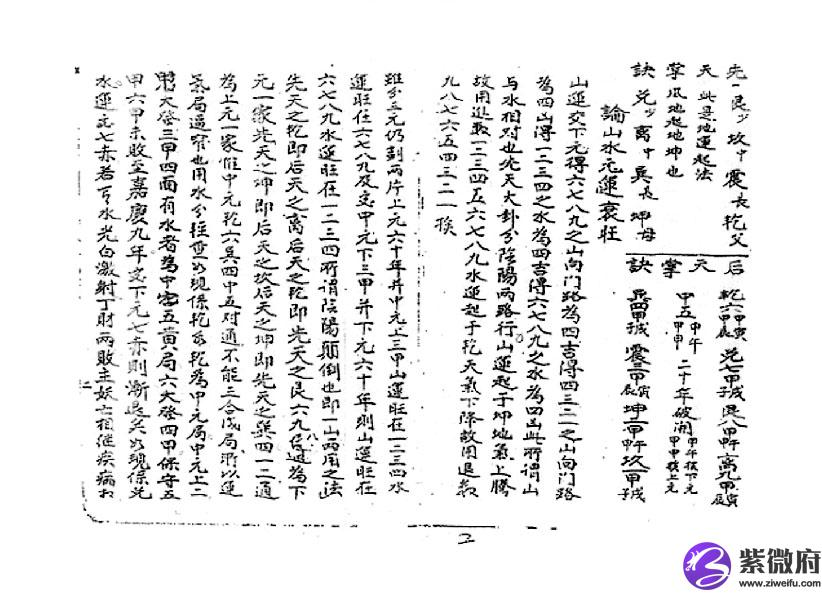 先一艮少坎中震長乾父
天 此是地運起法
掌 從地起地坤也
訣 兌少离中巽長坤母
后天掌訣
乾六甲寅甲辰 兌七甲子甲戌 艮八甲午 离九甲寅甲辰
中五甲午甲申 二十年破開 甲午後下元 甲申後上元
巽四甲子甲戌 震三甲寅甲辰 坤二甲申甲午 坎一甲子甲戌
論山水元運衰旺
山運交下元得六七八九之山向門路為四吉得四三二一之山向門路
為四凶得一二三四之水為四吉得六七八九之水為四凶此所謂山
与水相对也先天大卦分陰陽兩路行山運起子坤地氣上騰
故用進数一二三四五六七八九水運起于乾天氣下降故用退数
九八七六五四三二一挨
雖分三元仍到兩片上元六十年并中元上三甲山運旺在一二三四水
運旺在六七八九及交中元下三甲并下元六十年則山運旺在
六七八九水運旺在一二三四所謂陰陽顛倒也即一山兩用之法
先天之乾即后天之离后天之乾即先天之艮六九八七通為下
元一家先天之坤即后天之坎后天之坤即先天之巽四一二三通
為上元一家惟中元乾六巽四中五对通不能三合成局所以運
氣局逼窄也用水分輕重如現係乾乾為中元局中元上二
甲大發三甲四面有水者為中宮五黃局六大發四甲保守五
甲六甲未敗至嘉慶九年交下元七赤則漸退矣如現係兌
水運之七赤若有水光白激射丁財兩敗主妖亡相継疾病
二
工
紫微府
www.ziweifu.com